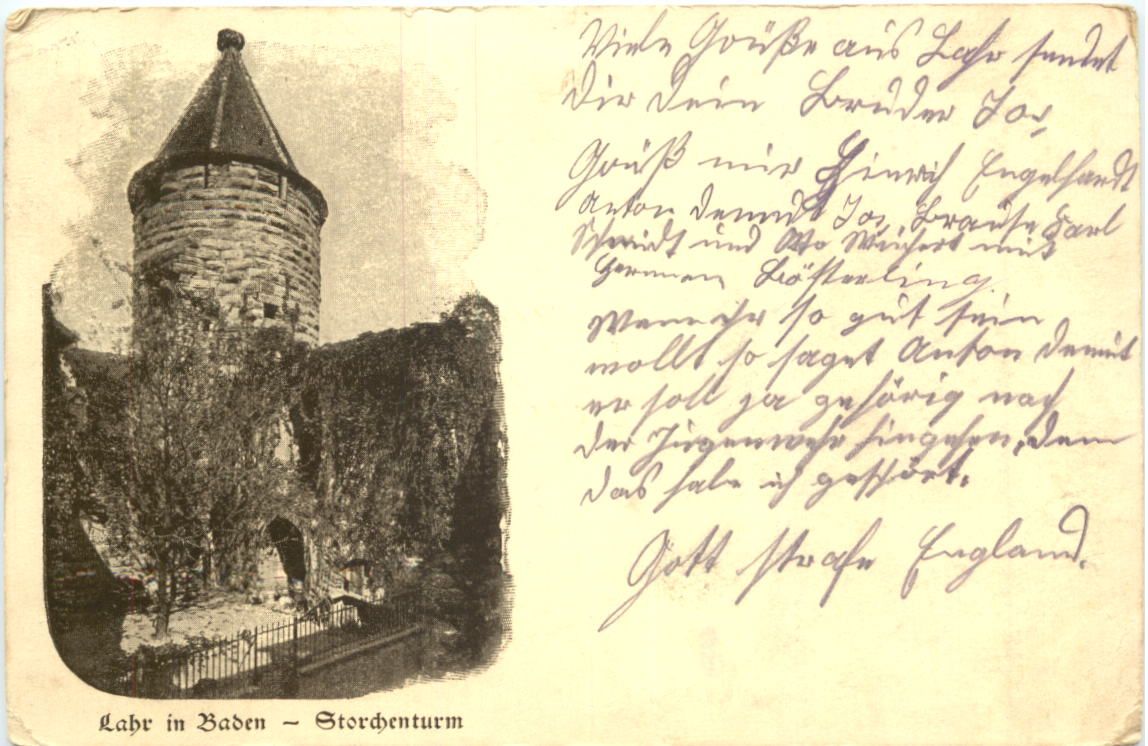 Viele Grüße aus Lahr sendet
Dir Dein Bruder Jos.
Grüß mir Heinrich Engelhardt
Anton Demudt Jos. Brause Karl
Schmidt und Wichert mit
Herman Kösterling
Wenn ihr so gut sein
wollt so saget Anton Demut
er soll ja gehörig nach
der Jugenwehr hingehen, denn
das habe ich gehört.
Gott strafe England.
Lahr in Baden – Storchenturm